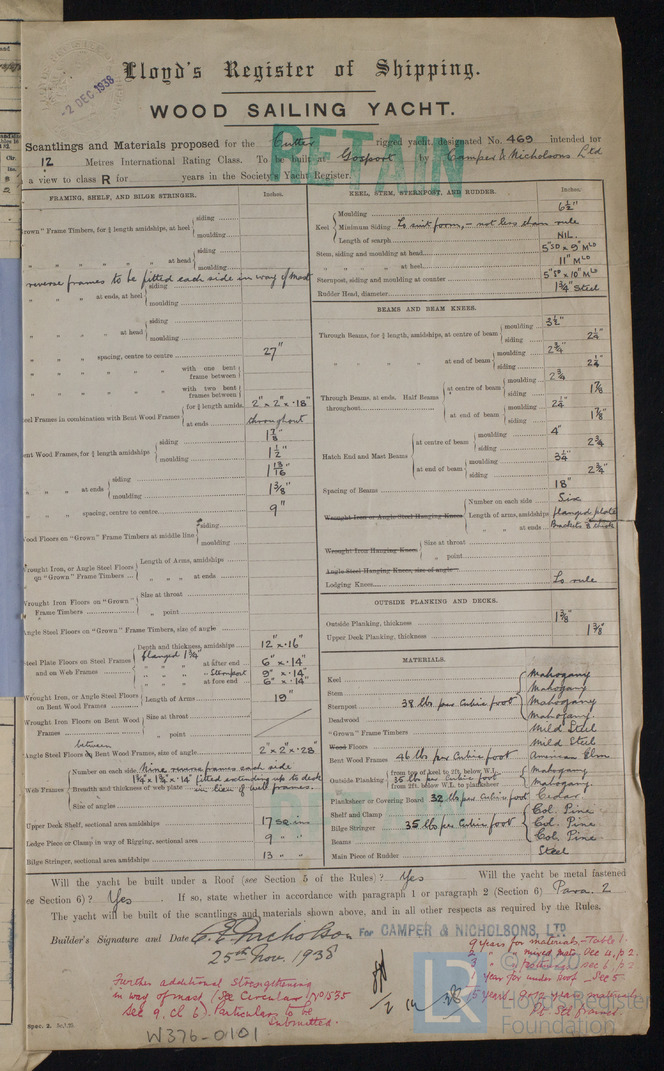 Lloyd's Register of Shipping.
-2 DEC 1938
WOOD SAILING YACHT.
RETAIN
Scantlings and Materials proposed for the Cutter rigged yacht, designated No. 469 intended for
12 Metres International Rating Class. To be built at Gosport by Camper & Nicholsons Ltd
a view to class R for years in the Society's Yacht Register.
FRAMING, SHELF, AND BILGE STRINGER. Inches.
"Grown" Frame Timbers, for ¾ length amidships, at heel siding
moulding
" " " " at head siding
moulding
reverse frames to be fitted each side in way of mast
" " at ends, at heel siding
moulding
" " " at head siding
moulding
" " spacing, centre to centre 27"
" " " with one bent frame between
" " " with two bent frames between
Steel Frames in combination with Bent Wood Frames for ¾ length amids. 2" x 2" x .18"
at ends throughout
Bent Wood Frames, for ¾ length amidships siding 1 7/8"
moulding 1 1/2"
" " " at ends siding 1 13/16"
moulding 1 3/8"
" " " spacing, centre to centre 9"
Wood Floors on "Grown" Frame Timbers at middle line siding
moulding
Wrought Iron, or Angle Steel Floors on "Grown" Frame Timbers Length of Arms, amidships
" " " at ends
Wrought Iron Floors on "Grown" Frame Timbers Size at throat
" point
Angle Steel Floors on "Grown" Frame Timbers, size of angle
Steel Plate Floors on Steel Frames and on Web Frames Depth and thickness, amidships 12" x .16"
flanged 1 3/4"
" " " at after end 6" x .14"
" " " " Sternpost 9" x .14"
" " " at fore end 6" x .14"
Wrought Iron, or Angle Steel Floors on Bent Wood Frames Length of Arms 19"
Wrought Iron Floors on Bent Wood Frames Size at throat
" point
Angle Steel Floors between Bent Wood Frames, size of angle 2" x 2" x .28"
Web Frames Number on each side Nine reverse frames each side
1 3/4 x 1 3/4 x .14" fitted extending up to deck
Breadth and thickness of web plate in lieu of web frames.
Size of angles
Upper Deck Shelf, sectional area amidships 17 sq ins
Ledge Piece or Clamp in way of Rigging, sectional area 9 " "
Bilge Stringer, sectional area amidships 13 " "
KEEL, STEM, STERNPOST, AND RUDDER. Inches.
Keel Moulding 6 1/2"
Minimum Siding To suit form, - not less than rule
Length of scarph NIL.
Stem, siding and moulding at head 5" SD x 9" MLD
" " " at heel 11" MLD
Sternpost, siding and moulding at counter 5" SD x 10" MLD
Rudder Head, diameter 1 3/4" Steel
BEAMS AND BEAM KNEES.
Through Beams, for ¾ length, amidships, at centre of beam moulding 3 1/2"
siding 2 1/4"
" " " " at end of beam moulding 2 3/4"
siding 2 1/4"
Through Beams, at ends, Half Beams throughout at centre of beam moulding 2 3/4
siding 1 7/8
at end of beam moulding 2 1/4"
siding 1 7/8"
Hatch End and Mast Beams at centre of beam moulding 4"
siding 2 3/4
at end of beam moulding 3 1/4"
siding 2 3/4"
Spacing of Beams 18"
Wrought Iron or Angle Steel Hanging Knees Number on each side Six
Length of arms, amidships flanged plate
" " at ends Brackets
Wrought Iron Hanging Knees Size at throat
" point
Angle Steel Hanging Knees, size of angle
Lodging Knees To rule
OUTSIDE PLANKING AND DECKS.
Outside Planking, thickness 1 3/8"
Upper Deck Planking, thickness 1 3/8"
MATERIALS.
Keel Mahogany
Stem Mahogany
Sternpost 38 lbs per Cubic foot Mahogany
Deadwood Mahogany.
"Grown" Frame Timbers Mild Steel
Wood Floors Mild Steel
Bent Wood Frames 46 lbs per Cubic foot American Elm
Outside Planking from top of keel to 2ft. below W.L. Mahogany
35 lbs per Cubic foot
from 2ft. below W.L. to planksheer Mahogany.
Planksheer or Covering Board 32 lbs per Cubic foot Cedar.
Shelf and Clamp Col. Pine
Bilge Stringer 35 lbs per Cubic foot Col. Pine
Beams Col. Pine
Main Piece of Rudder Steel
RETAIN
Will the yacht be built under a Roof (see Section 5 of the Rules)? Yes Will the yacht be metal fastened
see Section 6)? Yes If so, state whether in accordance with paragraph 1 or paragraph 2 (Section 6) Para. 2
The yacht will be built of the scantlings and materials shown above, and in all other respects as required by the Rules.
Builder's Signature and Date C. E. Nicholson FOR CAMPER & NICHOLSONS, LTD
25th Nov. 1938
9 years for materials - Table 1.
2 " " mixed mats. Sec 4, p 2.
3 " " fastenings sec 6, p 2
1 year for under roof - Sec 5
15 years
Further additional strengthening
in way of mast (See Circular No 1535
Sec 9, Cl 6). Particulars to be
submitted.
Spec. 2.
W376-0101
LR
Lloyd's Register
Foundation